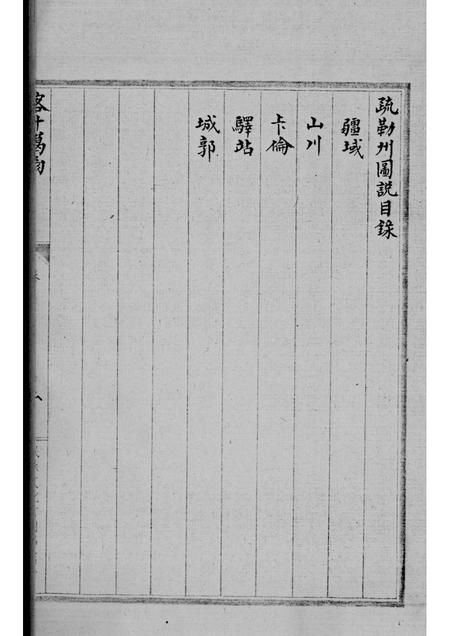 疏勒州圖說目錄
疆域
山川
卡倫
驛站
城郭